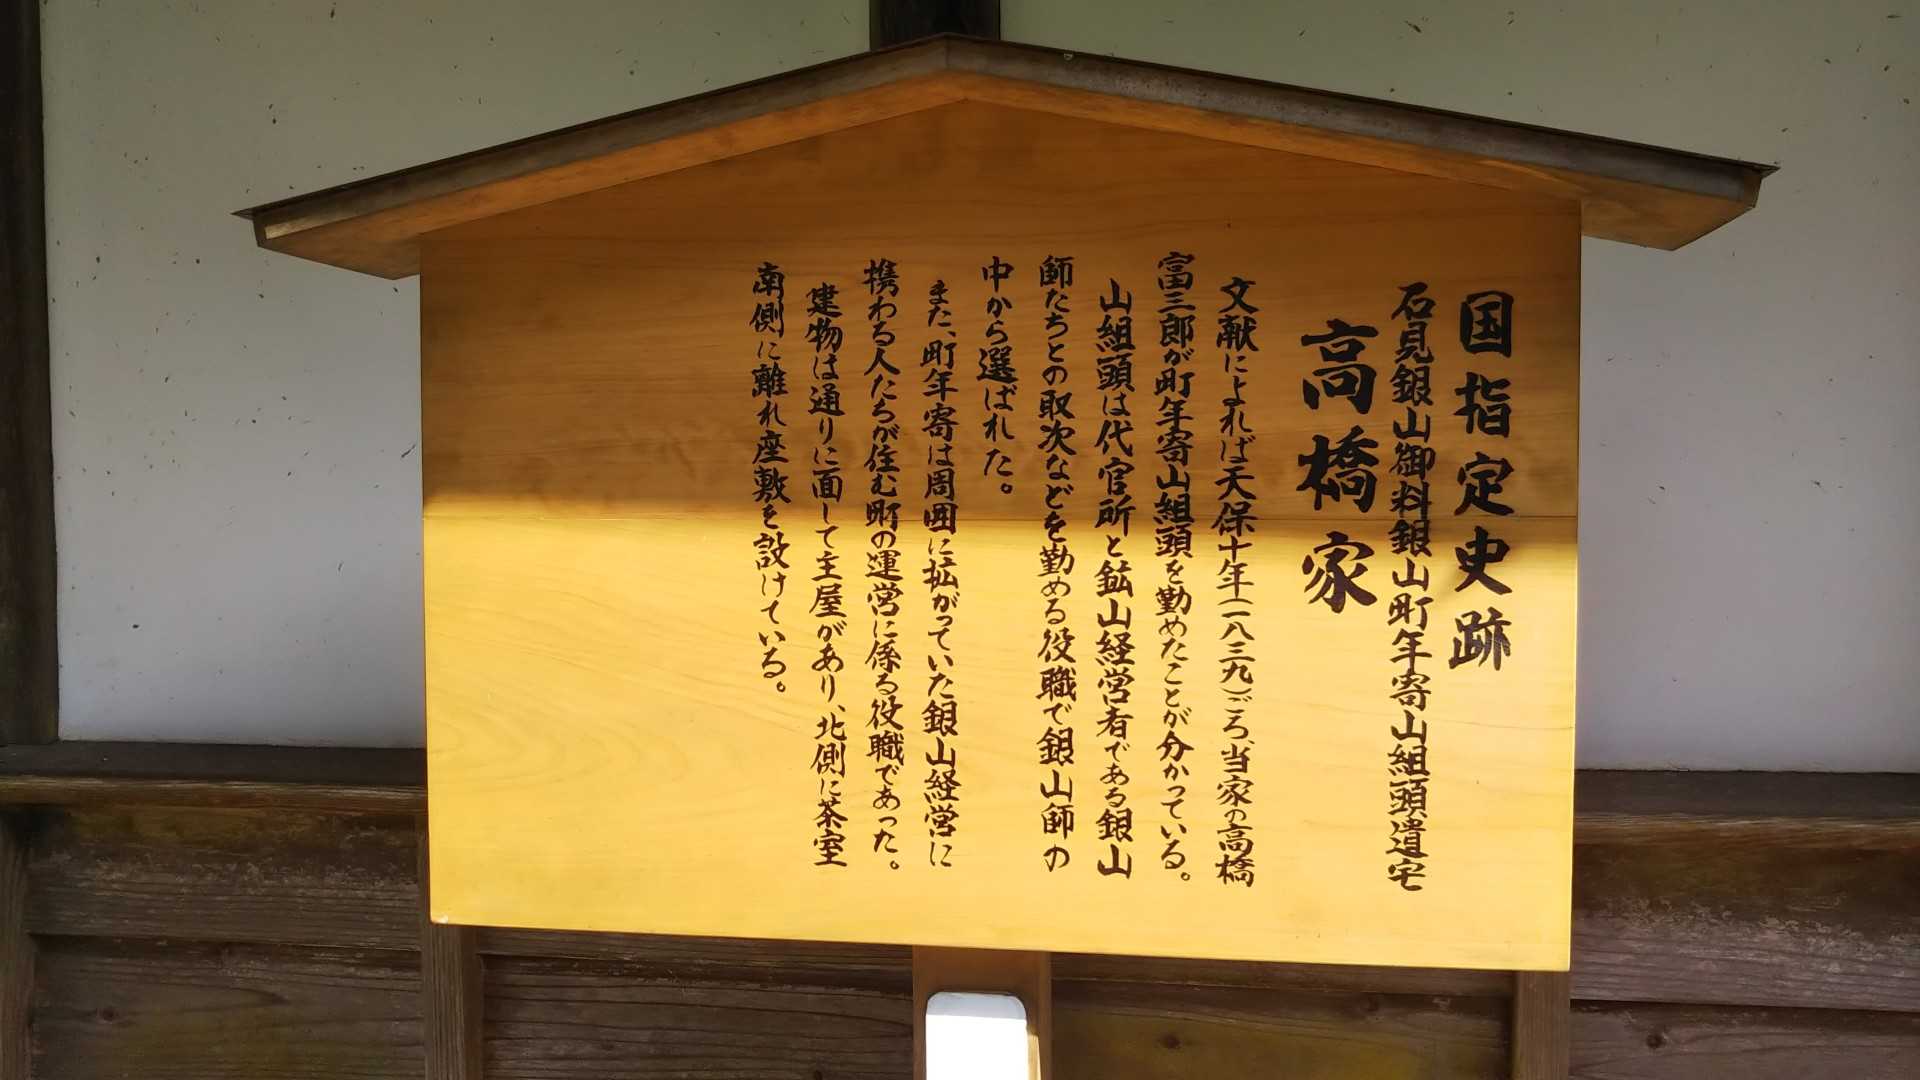 国指定史跡
石見銀山御料銀山町年寄山組頭遺宅
高橋家
文献によれば天保十年(一八三九)ごろ、当家の高橋
富三郎が町年寄山組頭を勤めたことが分かっている。
山組頭は代官所と鉱山経営者である銀山
師たちとの取次などを勤める役職で銀山師の
中から選ばれた。
また、町年寄は周囲に拡がっていた銀山経営に
携わる人たちが住む町の運営に係る役職であった。
建物は通りに面して主屋があり、北側に茶室
南側に離れ座敷を設けている。